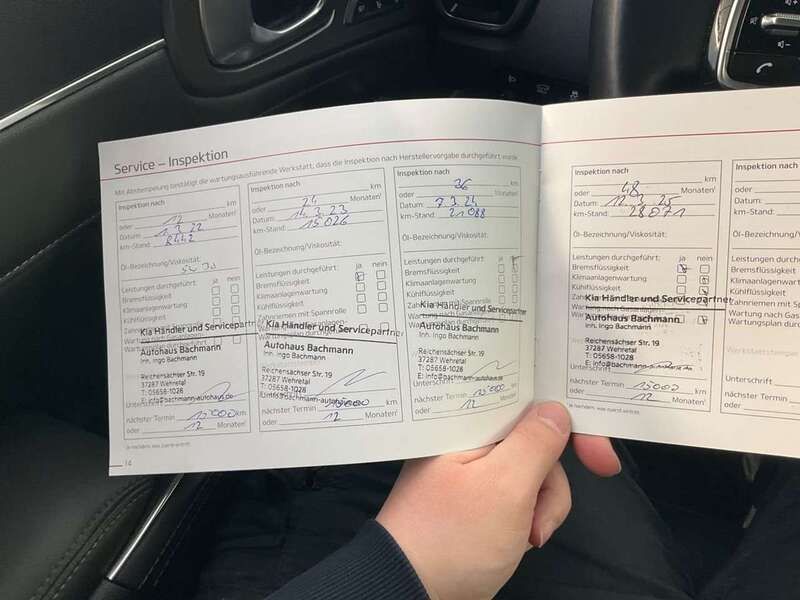 Service – Inspektion
Mit Abstempelung bestätigt die wartungsausführende Werkstatt, dass die Inspektion nach Herstellervorgabe durchgeführt wurde
Inspektion nach
km
oder 12 Monaten¹
Datum: 1.3.22
km-Stand: 8442
Öl-Bezeichnung/Viskosität:
Leistungen durchgeführt: ja nein
Bremsflüssigkeit
Klimaanlagenwartung
Kühlflüssigkeit
Kia Händler und Servicepartner
Autohaus Bachmann
Inh. Ingo Bachmann
Reichensächser Str. 19
37287 Wehretal
T: 05658-1028
E: info@bachmann-autohaus.de
Unterschrift
nächster Termin 15000 km
oder 12 Monaten¹
Je nachdem, was zuerst eintritt.
14
Inspektion nach
km
oder 24 Monaten¹
Datum: 14.3.23
km-Stand: 15026
Öl-Bezeichnung/Viskosität:
Leistungen durchgeführt: ja nein
Bremsflüssigkeit
Klimaanlagenwartung
Kühlflüssigkeit
Zahnriemen mit Spannrolle
Kia Händler und Servicepartner
Autohaus Bachmann
Inh. Ingo Bachmann
Reichensächser Str. 19
37287 Wehretal
T: 05658-1028
Unterschrift
nächster Termin 15000 km
oder 12 Monaten¹
Inspektion nach
km
oder 36 Monaten¹
Datum: 7.3.24
km-Stand: 21088
Öl-Bezeichnung/Viskosität:
Leistungen durchgeführt: ja nein
Bremsflüssigkeit
Klimaanlagenwartung
Kühlflüssigkeit
Zahnriemen mit Spannrolle
Kia Händler und Servicepartner
Autohaus Bachmann
Inh. Ingo Bachmann
Reichensächser Str. 19
37287 Wehretal
T: 05658-1028
E: info@bachmann-autohaus.de
Unterschrift
nächster Termin 15000 km
oder 12 Monaten¹
Inspektion nach
km
oder 48 Monaten¹
Datum: 12.3.25
km-Stand: 28071
Öl-Bezeichnung/Viskosität:
Leistungen durchgeführt: ja nein
Bremsflüssigkeit
Klimaanlagenwartung
Kühlflüssigkeit
Kia Händler und Servicepartner
Autohaus Bachmann
Inh. Ingo Bachmann
Reichensächser Str. 19
37287 Wehretal
T: 05658-1028
Unterschrift
nächster Termin 15000 km
oder 12 Monaten¹
Je nachdem, was zuerst eintritt.
Inspektion nach
oder
Datum:
km-Stand:
Öl-Bezeichnung
Leistungen durch
Bremsflüssigkeit
Klimaanlagenwart
Kühlflüssigkeit
Zahnriemen mit S
Wartung nach Gas
Wartungsplan durc
Unterschrift
nächster Termin
oder